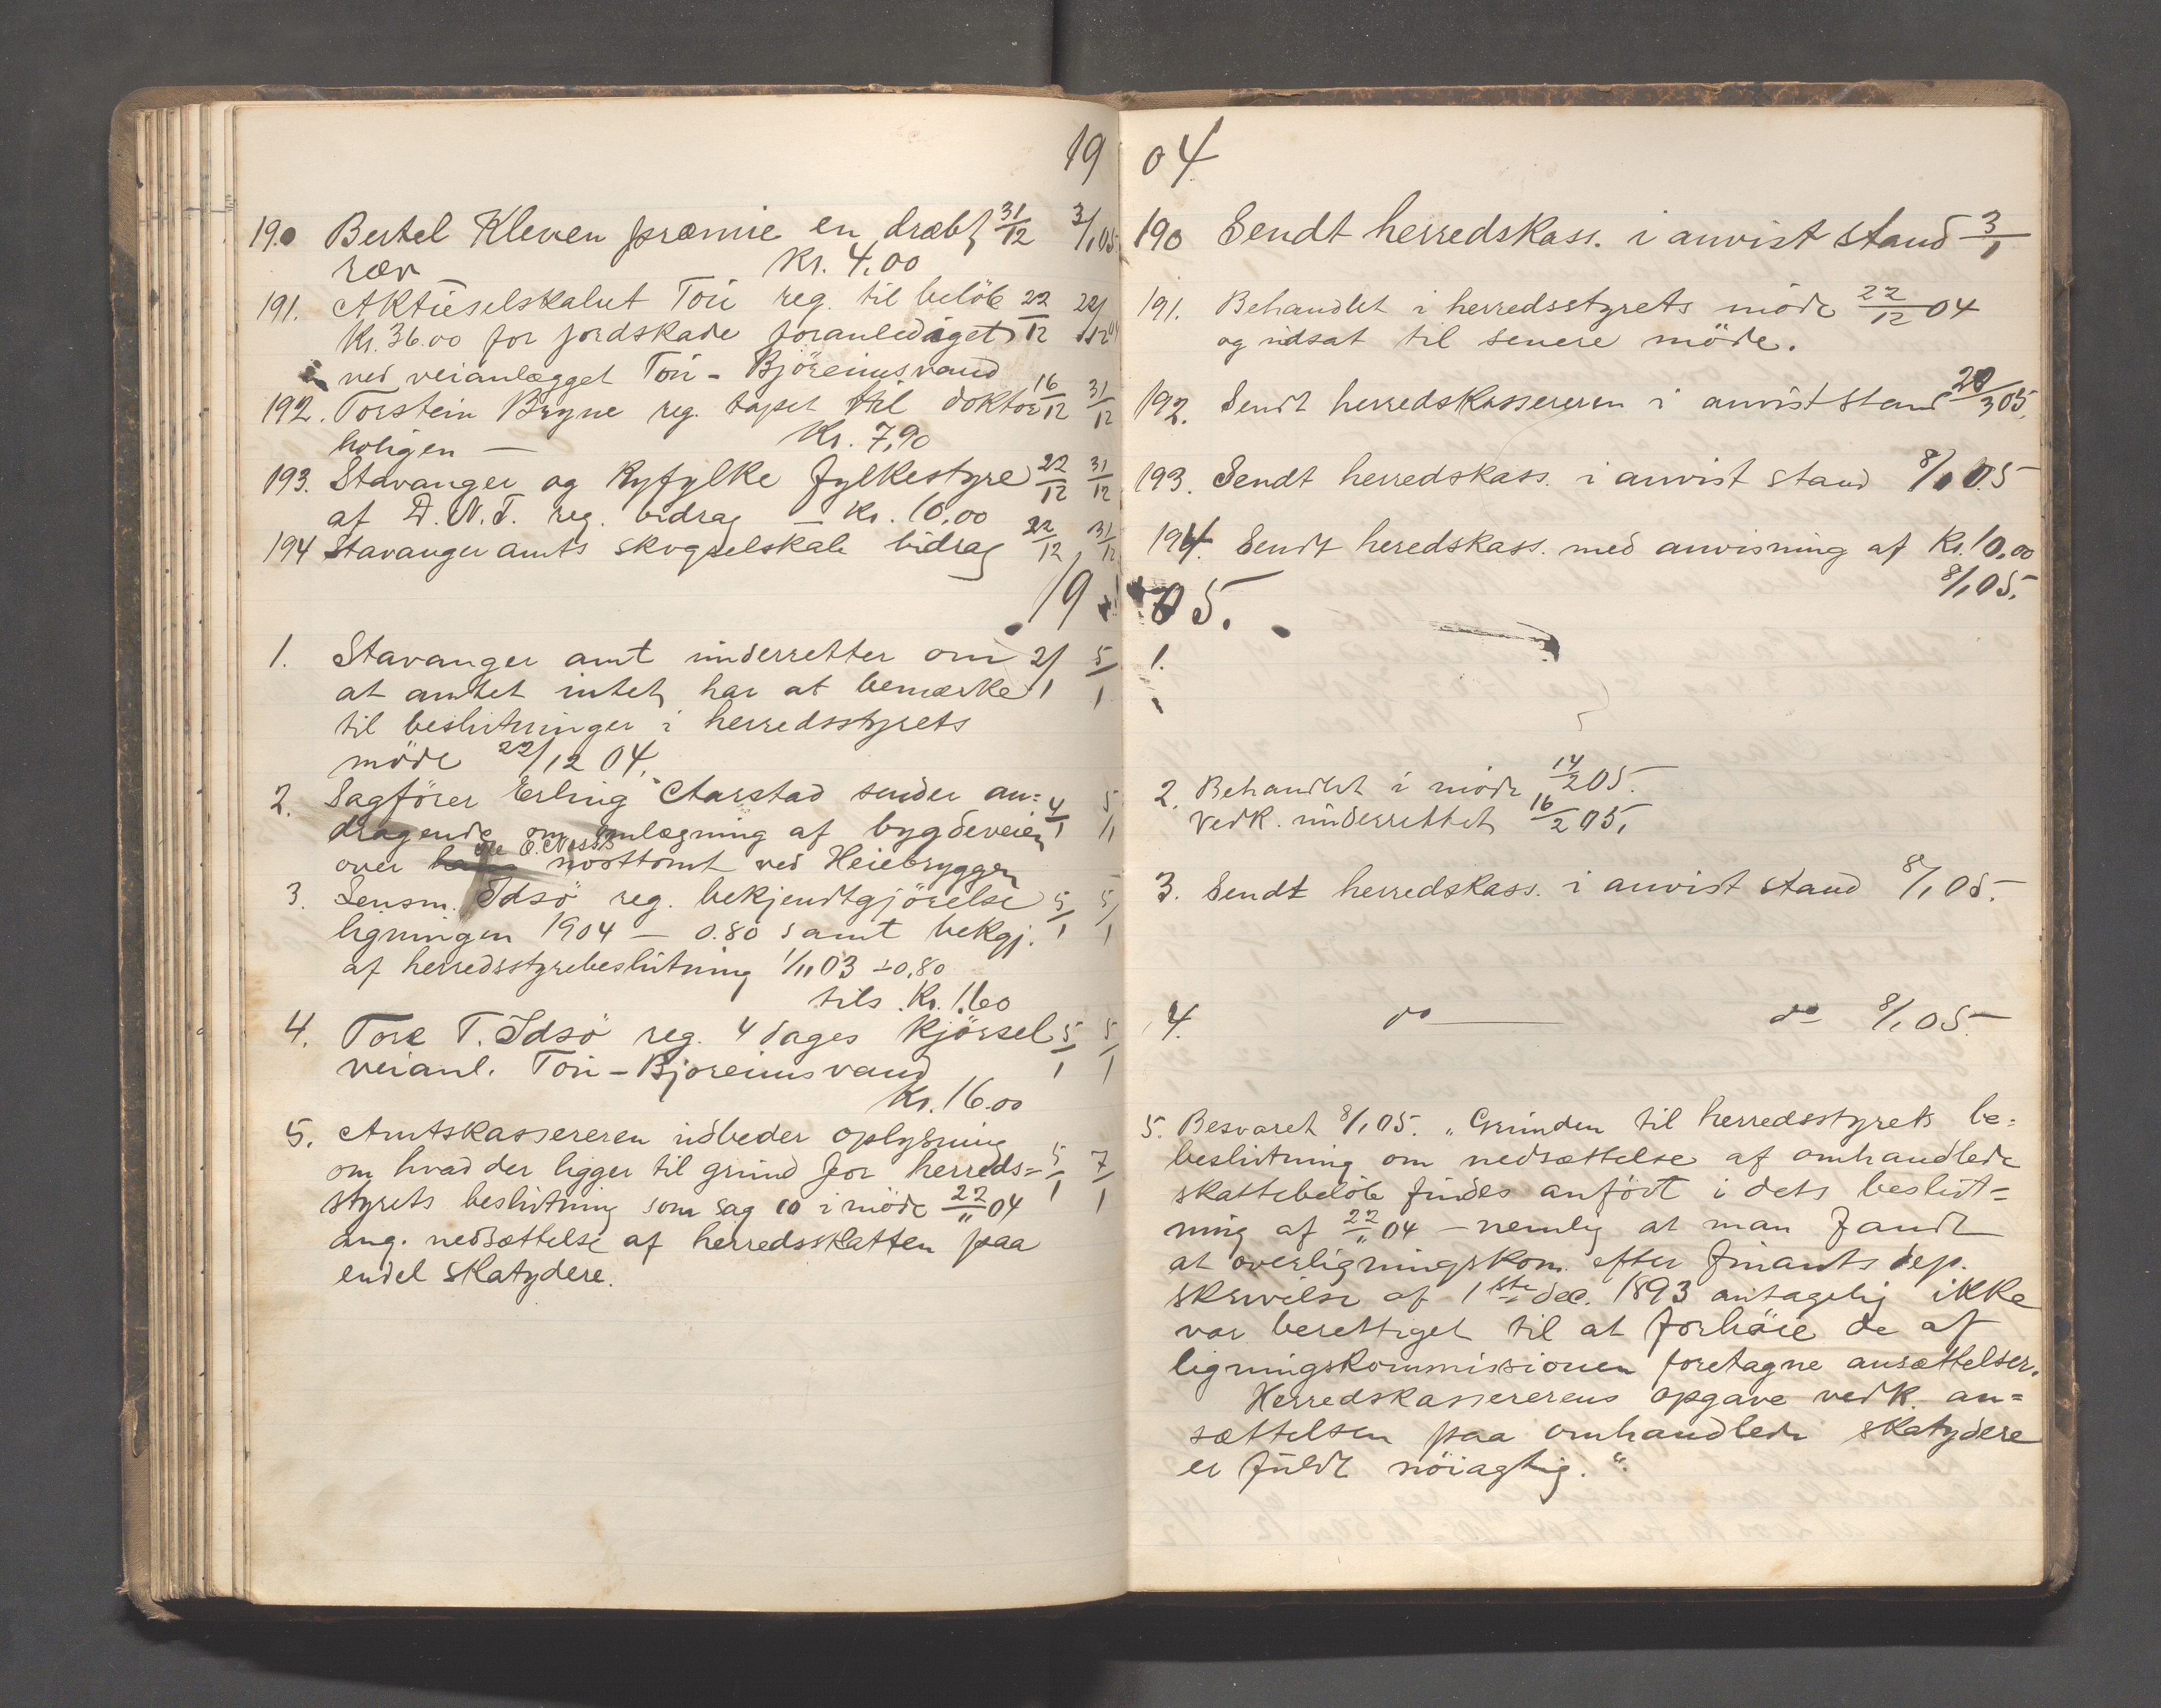 19
190 Bertel Kleven præmie en dræbt 31/12 3/1 05
ræv Kr. 4,00
191. Aktieselskabet Tou reg. til beløb 22/12 22/12 04
Kr. 36.00 for jordskade foranlediget
ved veianlægget Tou - Björeimsvand
192. Torstein Bryne reg. tapet til doktor 16/12 31/12
boligen — Kr. 7,90
193. Stavanger og Ryfylke fylkestyre 22/12 31/12
af D. N. T. reg. bidrag — Kr. 10,00
194 Stavanger amts skogselskab bidrag 22/12 31/12
19
1. Stavanger amt underretter om 2/1 5/1
at amtet intet har at bemærke
til beslutninger i herredsstyrets
möde 22/12 04.
2. Sagförer Erling Aarstad sender an= 4/1 5/1
dragende om omlægning af bygdeveien
over O. Næss's nosttomt ved Heiebryggen
3. Lensm. Idsö reg. bekjendtgjörelse 5/1 5/1
ligningen 1904 — 0.80 samt bekgj.
af herredsstyrebeslutning 1/11 03 - 0,80
tils. Kr. 1.60
4. Tore T. Idsö reg. 4 dages kjörsel 5/1 5/1
veianl. Tou - Bjoreimsvand
Kr. 16.00
5. Amtskassereren udbeder oplysning
om hvad der ligger til grund for herreds= 5/1 7/1
styrets beslutning som sag 10 i möde 22/11 04
ang. nedsættelse af herredsskatten paa
endel skatydere.
04
190 Sendt herredskass. i anvist stand 3/1
191. Behandlet i herredsstyrets möde 22/12 04
og udsat til senere möde.
192. Sendt herredskassereren i anvist stand 20/3 05.
193. Sendt herredskass. i anvist stand 8/1 05
194. Sendt heredskass. med anvisning af Kr. 10.00
8/1 05.
05.
1.
2. Behandlet i möde 14/2 05.
Vedk. underrettet 16/2 05.
3. Sendt herredskass. i anvist stand 8/1 05.
4. do — do 8/1 05.
5. Besvaret 8/1 05. „Grunden til herredsstyrets be=
beslutning om nedsættelse af omhandlede
skattebelöb findes anfört i dets beslut=
ning af 22/11 04 — nemlig at man fandt
at overligningskom. efter finantsdep.
skrivelse af 1ste dec. 1893 antagelig ikke
var berettiget til at forhöie de af
ligningskommissionen foretagne ansættelser.
Herredskassererens opgave vedk. an=
sættelsen paa omhandlede skatydere
er fuldt nöiagtig."